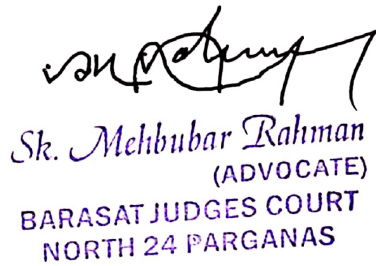 Sk. Mehbubar Rahman
(ADVOCATE)
BARASAT JUDGES COURT
NORTH 24 PARGANAS